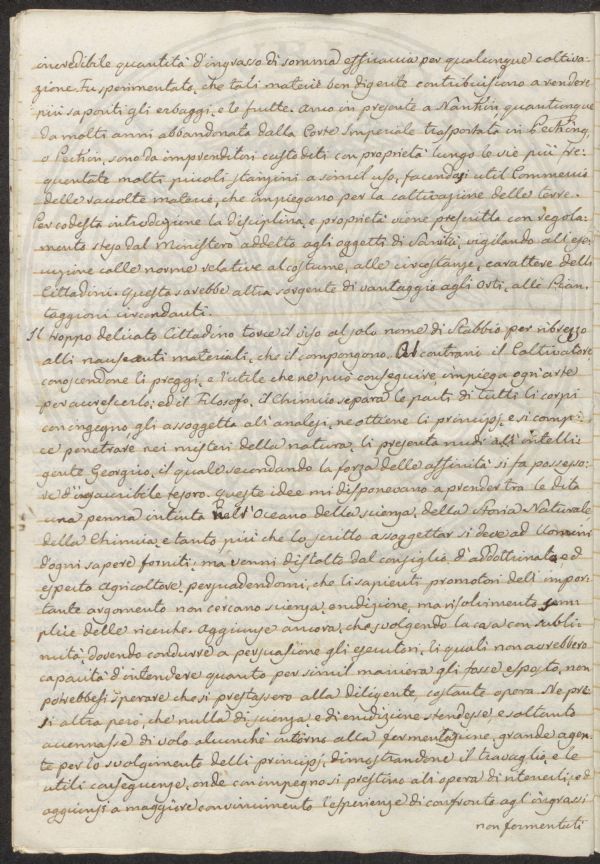 incredibile quantità d'ingrasso di somma efficacia per qualunque coltiva-
zione. Fu sperimentato, che tali materie ben digente contribuiscono a rendere
più saporiti gli erbaggi, e le frutte. Anco in presente a Nankin, quantunque
da molti anni abbandonata dalla Corte Imperiale trasportata in Pecking,
o Peckin, sono da imprenditori custoditi con proprietà lungo le vie più fre-
quentate molti piccoli stanzini a simil uso, facendosi util Commercio
delle raccolte materie, che impiegano per la coltivazione delle terre.
Per codesta introduzione la disciplina, e proprietà viene prescritta con regola-
mento steso dal Ministero addetto agli oggetti di Sanità, vigilando all'ese-
cuzione colle norme relative al costume, alle circostanze, carattere delli
Cittadini. Questa sarebbe altra sorgente di vantaggio agli Orti, alle Pian-
taggioni circondanti.
Il troppo delicato Cittadino torce il viso al solo nome di Stabbio per ribrezzo
alli nauseanti materiali, che il compongono. Al contrario il Coltivatore
conoscendone li preggi, e l'utile che ne può conseguire, impiega ogn'arte
per accrescerlo: ed il Filosofo, il Chimico separa le parti di tutti li corpi
con ingegno, gli assoggetta all'analisi, ne ottiene li principj, e si compia-
ce penetrare nei misteri della natura, li presenta nudi all'intelli-
gente Georgico, il quale secondando la forza delle affinità si fa possesso-
re d'inesauribile tesoro. Queste idee mi disponevano a prender tra le dita
una penna intinta nell'Oceano della scienza, della Storia Naturale
della Chimica, e tanto più che lo scritto assoggettar si deve ad Uomini
d'ogni sapere forniti; ma venni distolto dal consiglio d'addottrinato, ed
esperto Agricoltore, persuadendomi, che li sapienti promotori dell'impor-
tante argomento non cercano scienza, erudizione, ma risolvimento sem-
plice delle ricerche. Aggiunse ancora, che svolgendo la cosa con subli-
mità, dovendo condurre a persuasione gli esecutori, li quali non avrebbero
capacità d'intendere quanto per simil maniera gli fosse esposto, non
potrebbesi sperare che si prestassero alla diligente, costante opera. Ne pre-
si altra però, che nulla di scienza e di erudizione stendesse e soltanto
accennasse di volo alcunchè intorno alla fermentazione, grande agen-
te per lo svolgimento delli principj, dimostrandone il travaglio, e le
utili conseguenze, onde con impegno si prestino all'opera di ottenerli, ed
aggiunsi a maggiore convincimento l'esperienze di confronto agl'ingrassi
non fermentati